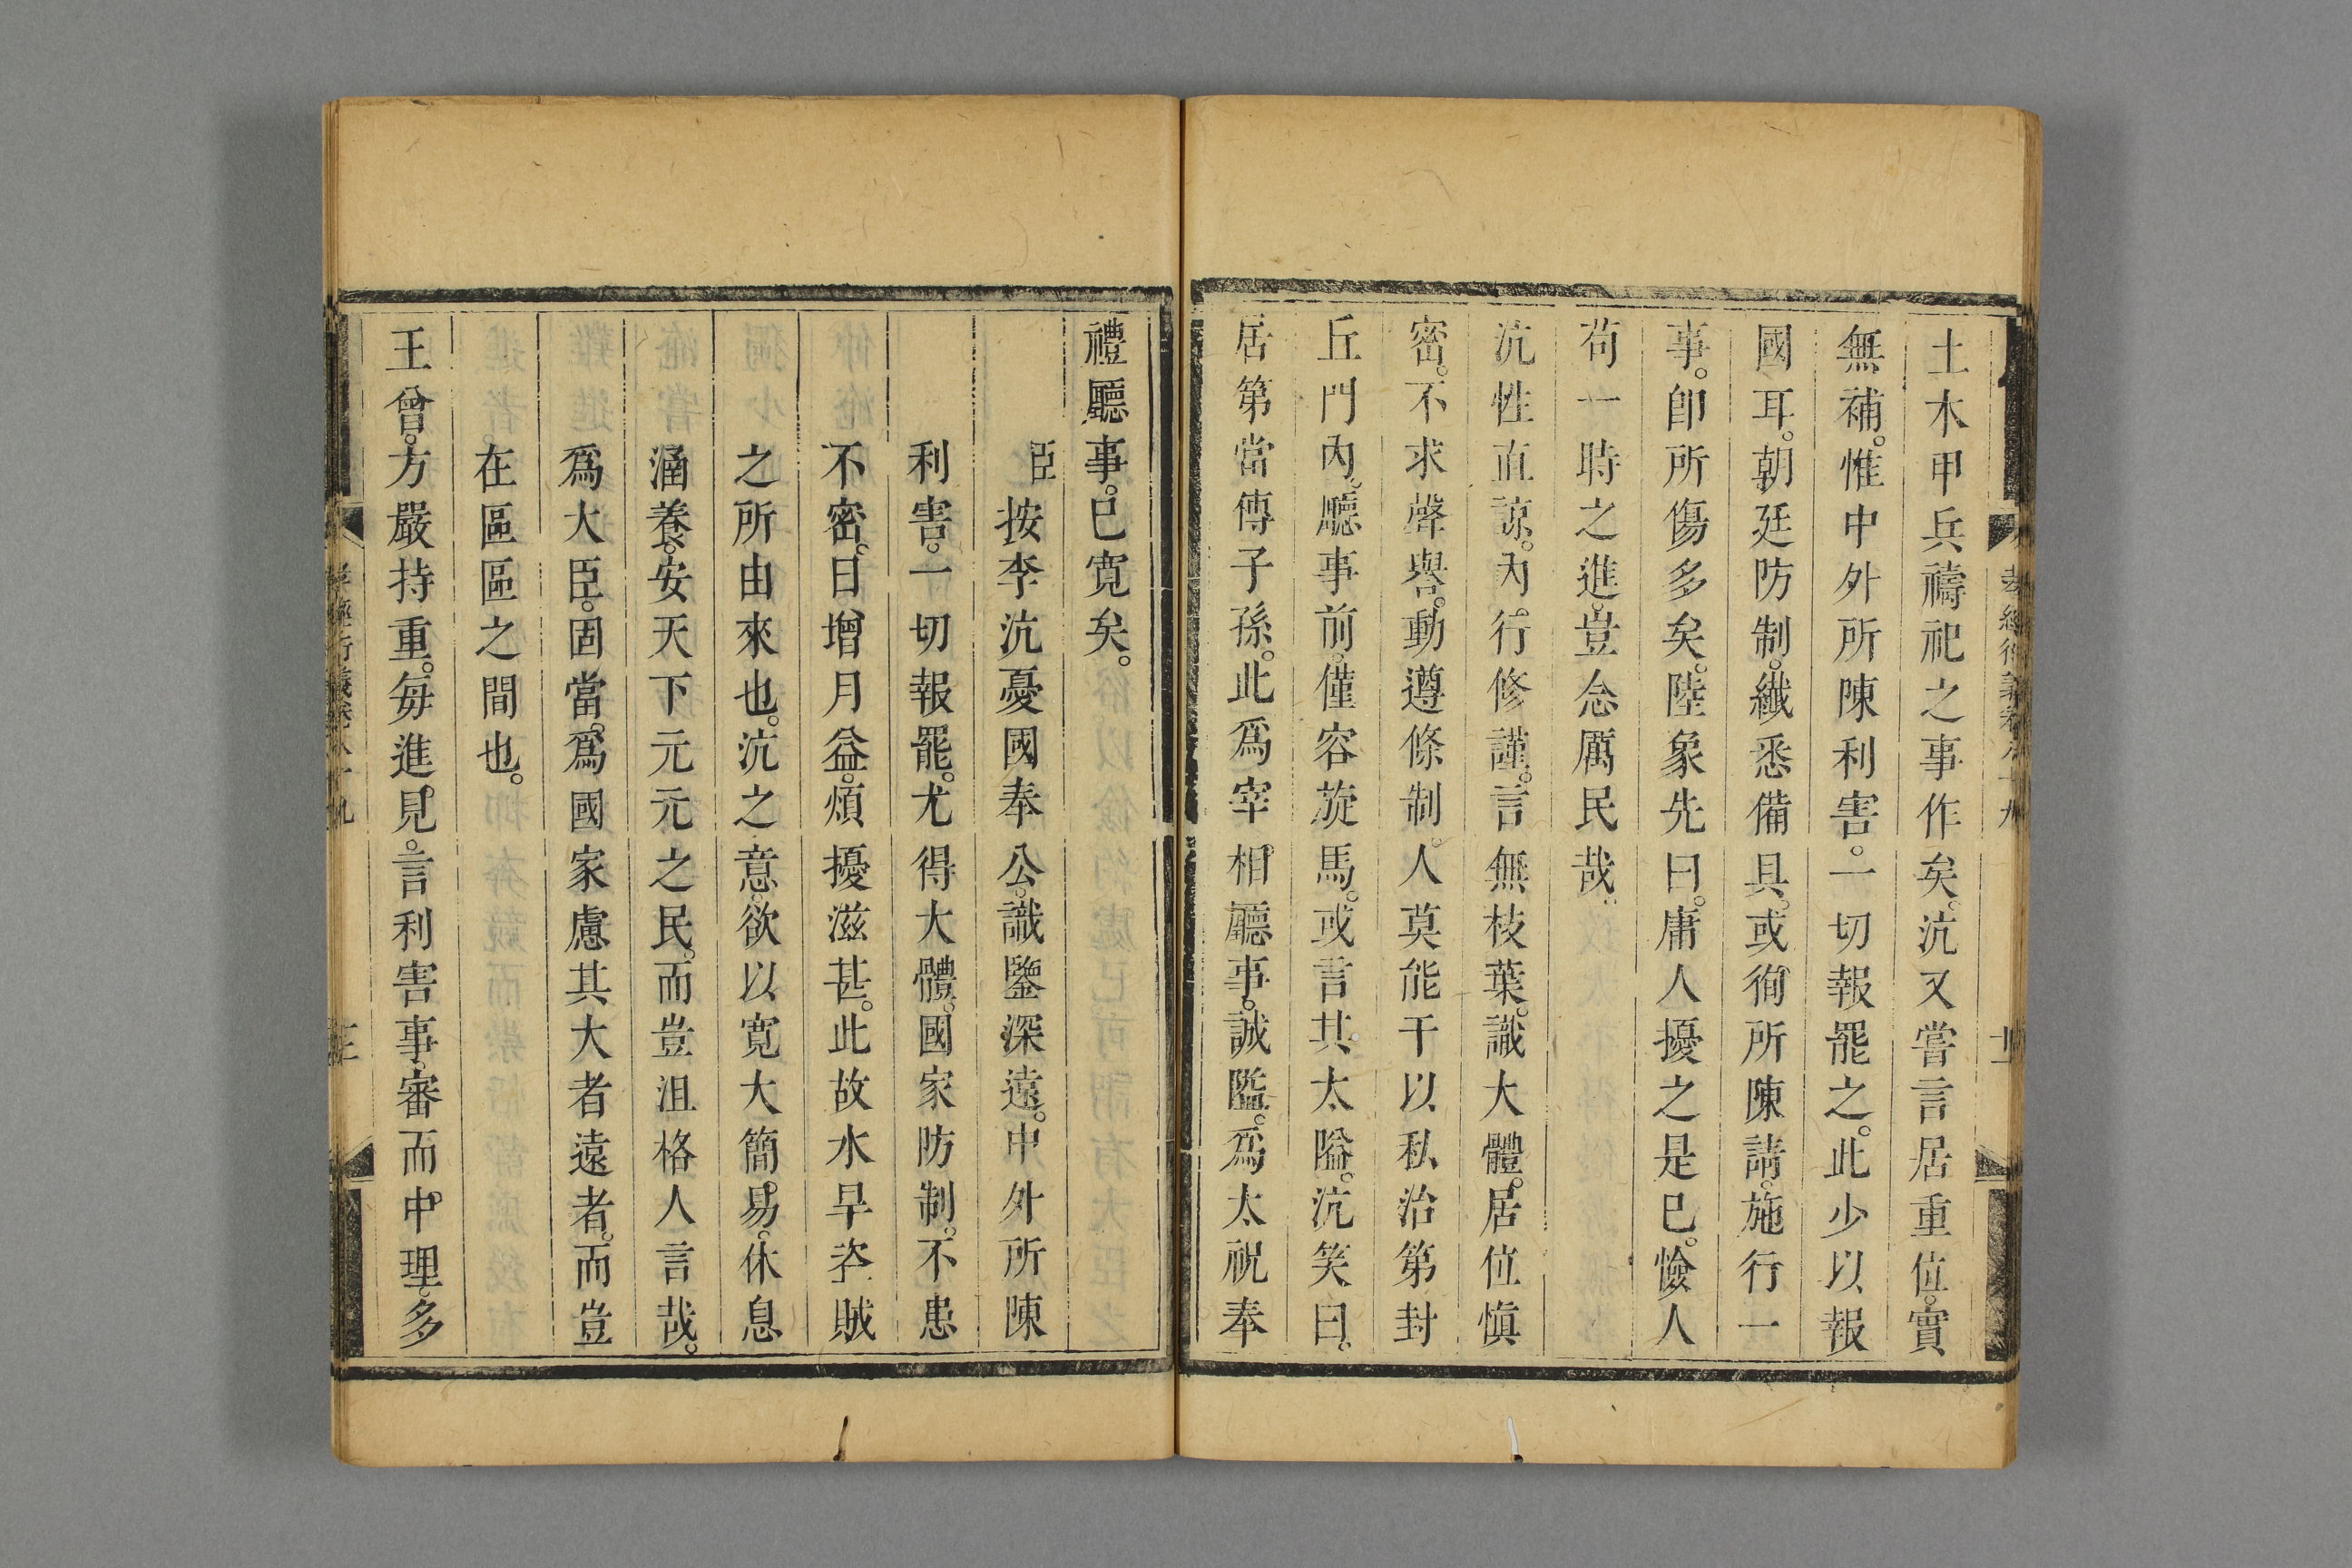 土木甲兵禱祀之事作矣。沆又嘗言居重位。實
無補。惟中外所陳利害。一切報罷之。此少以報
國耳。朝廷防制。纖悉備具。或徇所陳請。施行一
事。卽所傷多矣。陸象先曰。庸人擾之是已。憸人
苟一時之進。豈念厲民哉。
沆性直諒。內行修謹。言無枝葉。識大體。居位愼
密。不求聲譽。動遵條制。人莫能干以私。治第封
丘門內。廳事前。僅容旋馬。或言其太隘。沆笑曰。
居第當傳子孫。此爲宰相廳事。誠隘。爲太祝奉
禮廳事。已寛矣。
臣按李沆憂國奉公。識鑒深遠。中外所陳
利害。一切報罷。尤得大體。國家防制。不患
不密。日增月益。煩擾滋甚。此故水旱盗賊
之所由來也。沆之意。欲以寛大簡易。休息
涵養。安天下元元之民。而豈沮格人言哉。
爲大臣。固當爲國家慮其大者遠者。而豈
在區區之間也。
王曾。方嚴持重。每進見。言利害事。審而中理。多
孝經衍義卷八十九